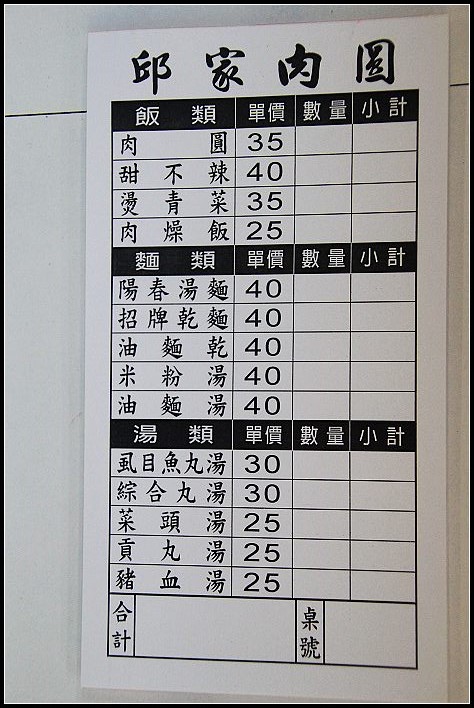 邱家肉圓
飯類 單價 數量 小計
肉圓 35
甜不辣 40
燙青菜 35
肉燥飯 25
麵類 單價 數量 小計
陽春湯麵 40
招牌乾麵 40
油麵乾 40
米粉湯 40
油麵湯 40
湯類 單價 數量 小計
虱目魚丸湯 30
綜合丸湯 30
菜頭湯 25
貢丸湯 25
豬血湯 25
合計 桌號